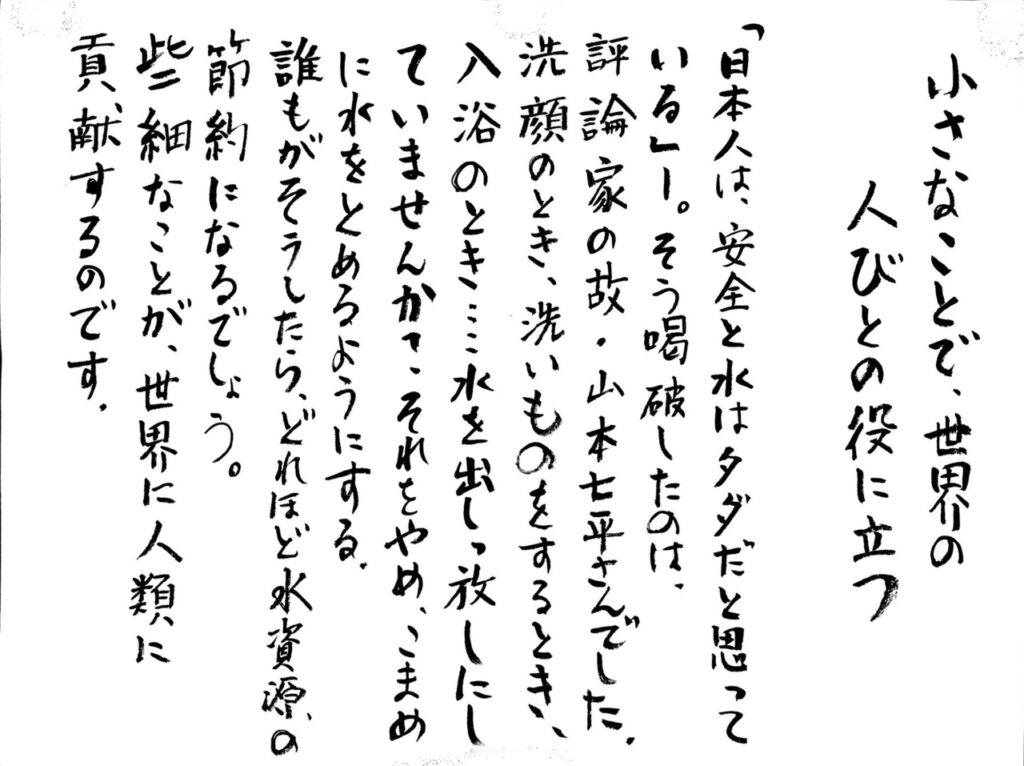 小さなことで、世界の
人びとの役に立つ
「日本人は、安全と水はタダだと思って
いる」ー。そう喝破したのは、
評論家の故・山本七平さんでした。
洗顔のとき、洗いものをするとき、
入浴のとき……水を出しっ放しにし
ていませんか?それをやめ、こまめ
に水をとめるようにする。
誰もがそうしたら、どれほど水資源の
節約になるでしょう。
些細なことが、世界に人類に
貢献するのです。